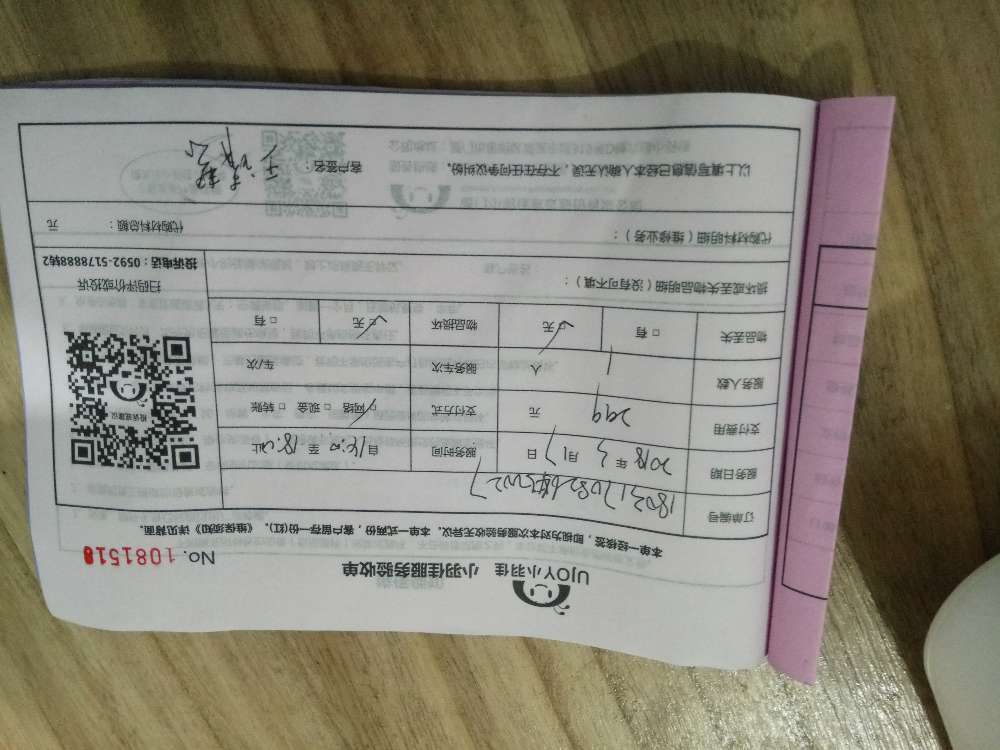 UJOY小羽佳 小羽佳服务验收单 No. 1081518
本单一经核签，即视为对本次服务验收无异议，本单一式两份，客户留存一份(红)。《维保须知》详见背面。
订单编号
服务日期 2018 年 3 月 17 日 服务时间 自 至
支付费用 299 元 支付方式 网络 □ 现金 □ 转账
服务人数 1 人 服务车次 车/次
物品丢失 □ 有 □ 无 物品损坏 □ 无 □ 有
投诉或建议
扫码评价或投诉
投诉电话：0592-5178888转2
损坏或丢失物品明细（没有可不填）：
代购材料明细（维修业务）： 代购材料总额： 元
以上填写信息已经本人确认无误，不存在任何争议纠纷。 客户签名：